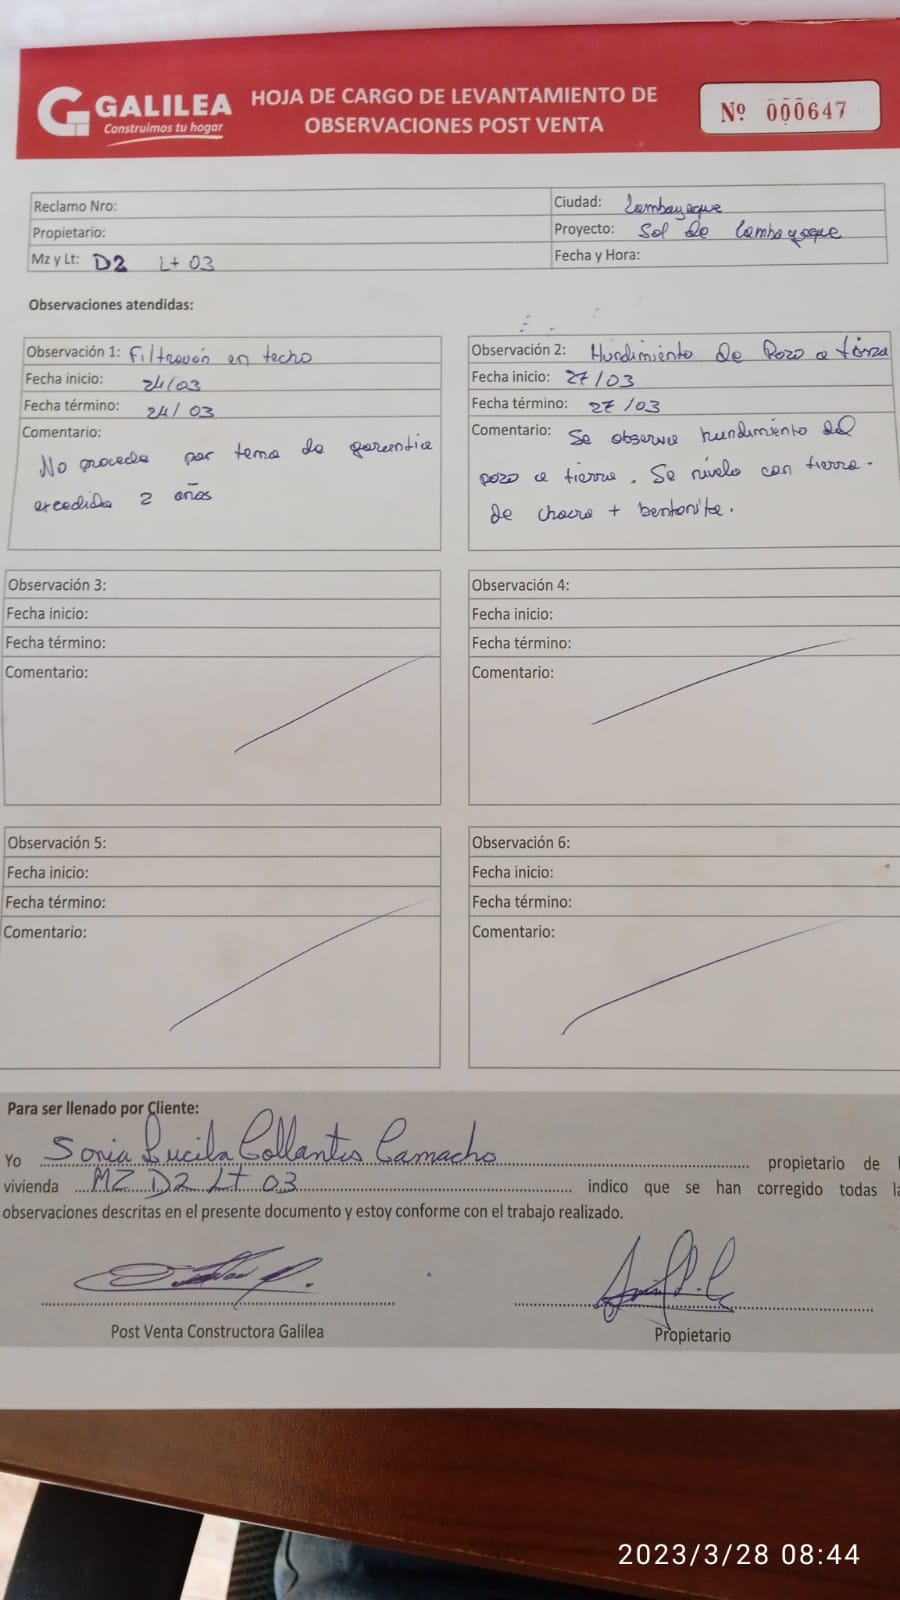 GALILEA
Construimos tu hogar
HOJA DE CARGO DE LEVANTAMIENTO DE
OBSERVACIONES POST VENTA
Nº 000647
Reclamo Nro:
Ciudad: Lambayeque
Propietario:
Proyecto: Sol de Lambayeque
Mz y Lt: D2 Lt 03
Fecha y Hora:
Observaciones atendidas:
Observación 1: Filtración en techo
Fecha inicio: 24/03
Fecha término: 24/03
Comentario:
No procede por tema de garantia
excedida 2 años
Observación 2: Hundimiento de Pozo a tierra
Fecha inicio: 27/03
Fecha término: 27/03
Comentario: Se observa hundimiento del
pozo a tierra. Se nivelo con tierra
de chacra + bentonita.
Observación 3:
Fecha inicio:
Fecha término:
Comentario:
Observación 4:
Fecha inicio:
Fecha término:
Comentario:
Observación 5:
Fecha inicio:
Fecha término:
Comentario:
Observación 6:
Fecha inicio:
Fecha término:
Comentario:
Para ser llenado por Cliente:
Yo Sonia Lucila Collantes Camacho propietario de
vivienda MZ D2 Lt 03 indico que se han corregido todas
observaciones descritas en el presente documento y estoy conforme con el trabajo realizado.
Post Venta Constructora Galilea
Propietario
2023/3/28 08:44